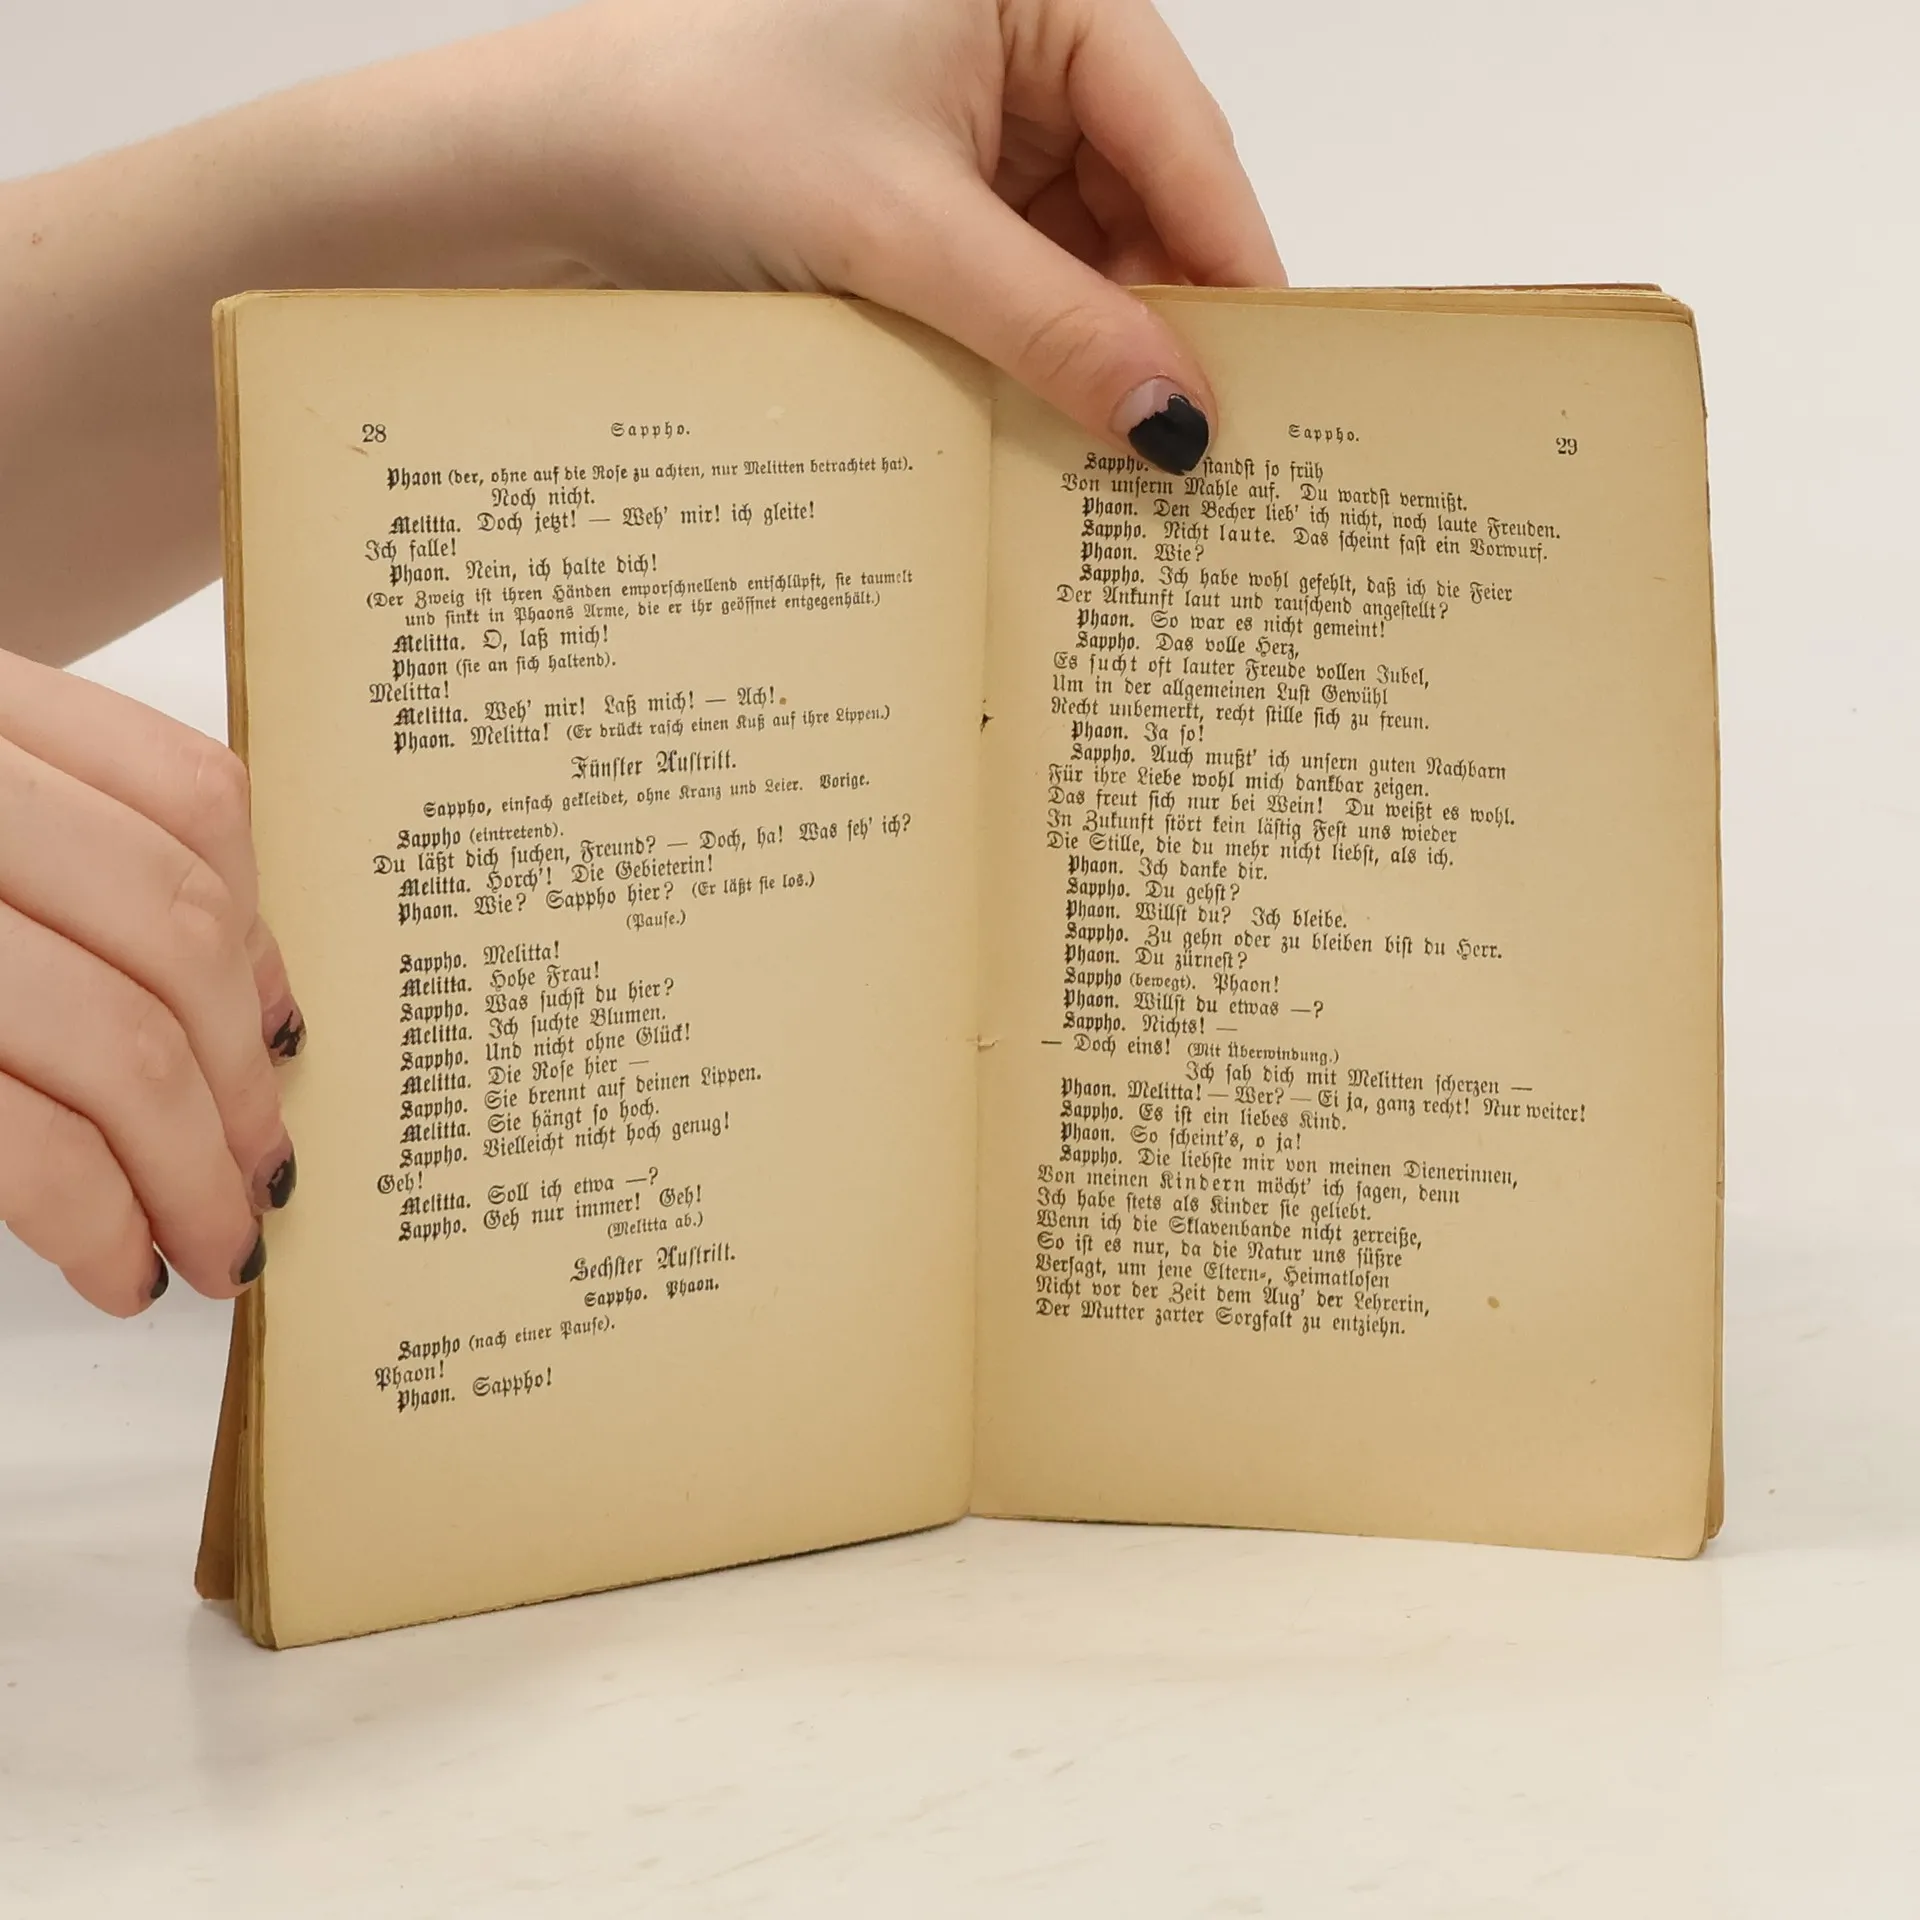 28
Sappho.
Phaon (der, ohne auf die Rose zu achten, nur Melitten betrachtet hat).
Noch nicht.
Melitta. Doch jetzt! — Weh' mir! ich gleite!
Ich falle!
Phaon. Nein, ich halte dich!
(Der Zweig ist ihren Händen emporschnellend entschlüpft, sie taumelt
und sinkt in Phaons Arme, die er ihr geöffnet entgegenhält.)
Melitta. O, laß mich!
Phaon (sie an sich haltend).
Melitta!
Melitta. Weh' mir! Laß mich! — Ach!
Phaon. Melitta! (Er drückt rasch einen Kuß auf ihre Lippen.)
Fünfter Auftritt.
Sappho, einfach gekleidet, ohne Kranz und Leier. Vorige.
Sappho (eintretend).
Du läßt dich suchen, Freund? — Doch, ha! Was seh' ich?
Melitta. Horch'! Die Gebieterin!
Phaon. Wie? Sappho hier? (Er läßt sie los.)
(Pause.)
Sappho. Melitta!
Melitta. Hohe Frau!
Sappho. Was suchst du hier?
Melitta. Ich suchte Blumen.
Sappho. Und nicht ohne Glück!
Melitta. Die Rose hier —
Sappho. Sie brennt auf deinen Lippen.
Melitta. Sie hängt so hoch.
Sappho. Vielleicht nicht hoch genug!
Geh!
Melitta. Soll ich etwa —?
Sappho. Geh nur immer! Geh!
(Melitta ab.)
Sechster Auftritt.
Sappho. Phaon.
Sappho (nach einer Pause).
Phaon!
Phaon. Sappho!
Sappho.
29
Sappho. standst so früh
Von unserm Mahle auf. Du wardst vermißt.
Phaon. Den Becher lieb' ich nicht, noch laute Freuden.
Sappho. Nicht laute. Das scheint fast ein Vorwurf.
Phaon. Wie?
Sappho. Ich habe wohl gefehlt, daß ich die Feier
Der Ankunft laut und rauschend angestellt?
Phaon. So war es nicht gemeint!
Sappho. Das volle Herz,
Es sucht oft lauter Freude vollen Jubel,
Um in der allgemeinen Lust Gewühl
Recht unbemerkt, recht stille sich zu freun.
Phaon. Ja so!
Sappho. Auch mußt' ich unsern guten Nachbarn
Für ihre Liebe wohl mich dankbar zeigen.
Das freut sich nur bei Wein! Du weißt es wohl.
In Zukunft stört kein lästig Fest uns wieder
Die Stille, die du mehr nicht liebst, als ich.
Phaon. Ich danke dir.
Sappho. Du gehst?
Phaon. Willst du? Ich bleibe.
Sappho. Zu gehn oder zu bleiben bist du Herr.
Phaon. Du zürnest?
Sappho (bewegt). Phaon!
Phaon. Willst du etwas —?
Sappho. Nichts! —
— Doch eins! (Mit Überwindung.)
Ich sah dich mit Melitten scherzen —
Phaon. Melitta! — Wer? — Ei ja, ganz recht! Nur weiter!
Sappho. Es ist ein liebes Kind.
Phaon. So scheint's, o ja!
Sappho. Die liebste mir von meinen Dienerinnen,
Von meinen Kindern möcht' ich sagen, denn
Ich habe stets als Kinder sie geliebt.
Wenn ich die Sklavenbande nicht zerreiße,
So ist es nur, da die Natur uns süßre
Versagt, um jene Eltern-, Heimatlosen
Nicht vor der Zeit dem Aug' der Lehrerin,
Der Mutter zarter Sorgfalt zu entziehn.